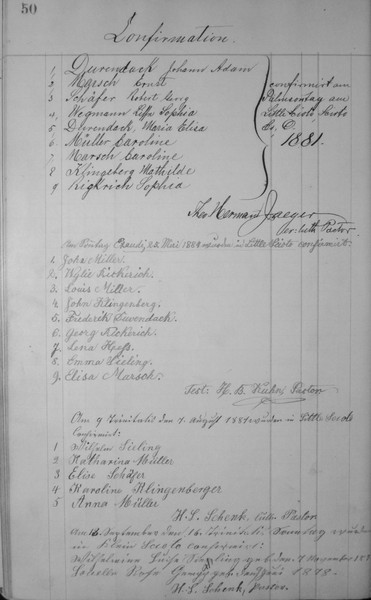 50
Confirmation.
1, Duvendack Johann Adam
2 Marsch Ernst
3 Schäfer Robert Georg
4, Wegmann Sophia
5 Duvendack, Maria Elisa
6 Müller Caroline
7 Marsch Caroline
8 Klingeberg Mathilde
9 Kickrich Sophia
confirmirt am
Palmsontag am
Little Scioto Scioto
Co. O.
1881.
Theo Hermann Jaeger
ev. luth Pastor
Am Sontag Exaudi, 22 Mai 1884 wurden in Little Scioto confirmirt:
1. John Miller.
2. Kickerich.
3. Louis Miller.
4. John Klingenberg.
5. Frederik Duvendack.
6. Georg Kickerich.
7. Lena Haas.
8. Emma Sieling.
9. Elisa Marsch.
Test: H. B. Kuhn, Pastor
Am 9 Trinitatis den 7. August 1887 wurden in Little Scioto
Confirmirt:
1 Wilhelm Sieling
2 Katharina Müller
3 Elise Schäfer
4 Karoline Klingenberger
5 Anna Müller
H. L. Schenk, Pastor
Am 16. September den 16. Trinitatis Sonntag wurden
in Klein Scioto confirmirt:
Wilhelmine Luise geb. den 7 November 187
geb. den 1873.
H. L. Schenk, Pastor.